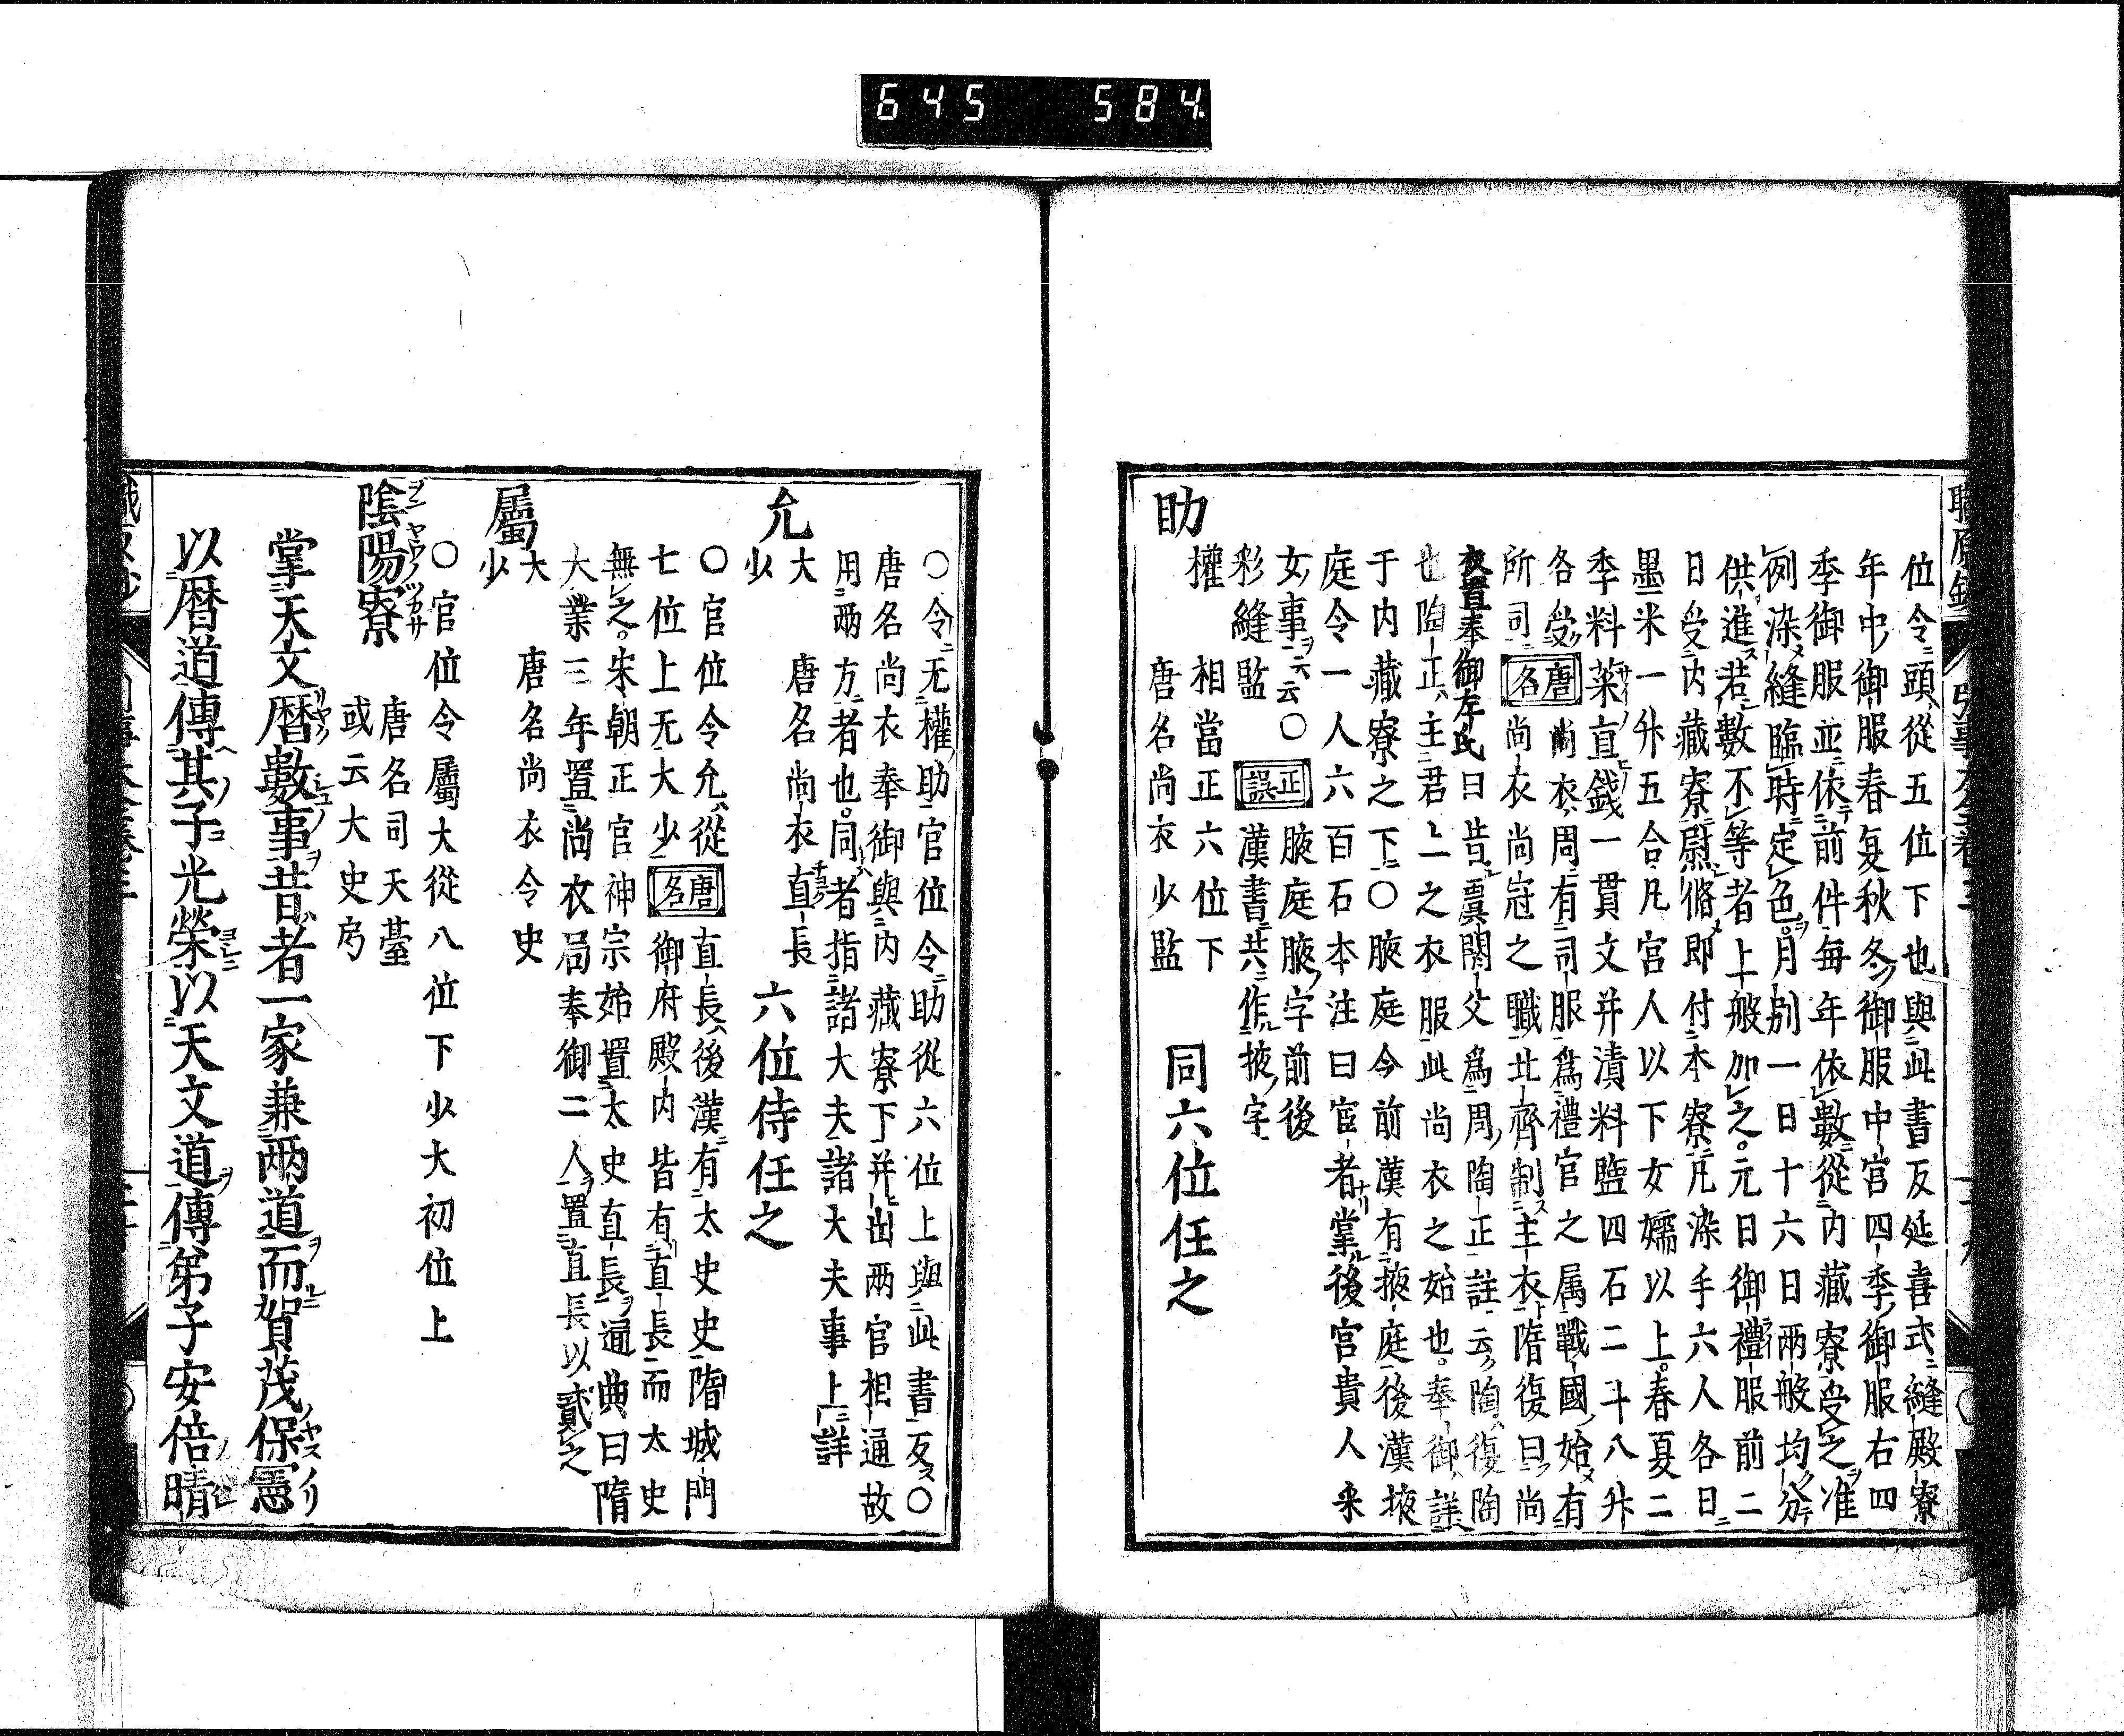 645 584
位令頭從五位下也與此書反延喜式縫殿寮
年中御服春夏秋冬御服中宮四季御服右四
季御服並依前件毎年依數從内藏寮受之准
例染縫臨時定色月別一日十六日兩般均分
供進若數不等者上般加之元日御禮服前二
日受内藏寮尉脩即付本寮凡染手六人各日
墨米一升五合凡宮人以下女嬬以上春夏二
季料菜直錢一貫文并漬料鹽四石二斗八升
各受唐名尚衣周有司服爲禮官之属戰國始有
所司尚衣尚冠之職北齊制主衣隋復曰尚
衣置奉御左氏曰昔虞閼父爲周陶正註云陶復陶
也陶正主君上之衣服此尚衣之始也奉御詳
于内藏寮之下○腋庭令前漢有掖庭後漢掖
庭令一人六百石本注曰宦者掌後宮貴人采
女事云云○正誤腋庭腋字前後
彩縫監漢書共作掖字
助
權
相當正六位下
唐名尚衣少監
同六位任之
○令无權助官位令助從六位上與此書反○
唐名尚衣奉御與内藏寮下并出兩官相通故
用兩方者也同者指諸大夫諸大夫事上詳
允
大
少
唐名尚衣直長
六位侍任之
○官位令允從
七位上无大少唐名直長後漢有太史史隋城門
御府殿内皆有直長而太史
無之宋朝正官神宗始置太史直長通典曰隋
大業三年置尚衣局奉御二人置直長以貳之
屬
大
少
唐名尚衣令史
○官位令屬大從八位下少大初位上
陰陽寮
唐名司天臺
或云大史局
掌天文暦數事昔者一家兼兩道而賀茂保憲
以暦道傳其子光榮以天文道傳弟子安倍晴